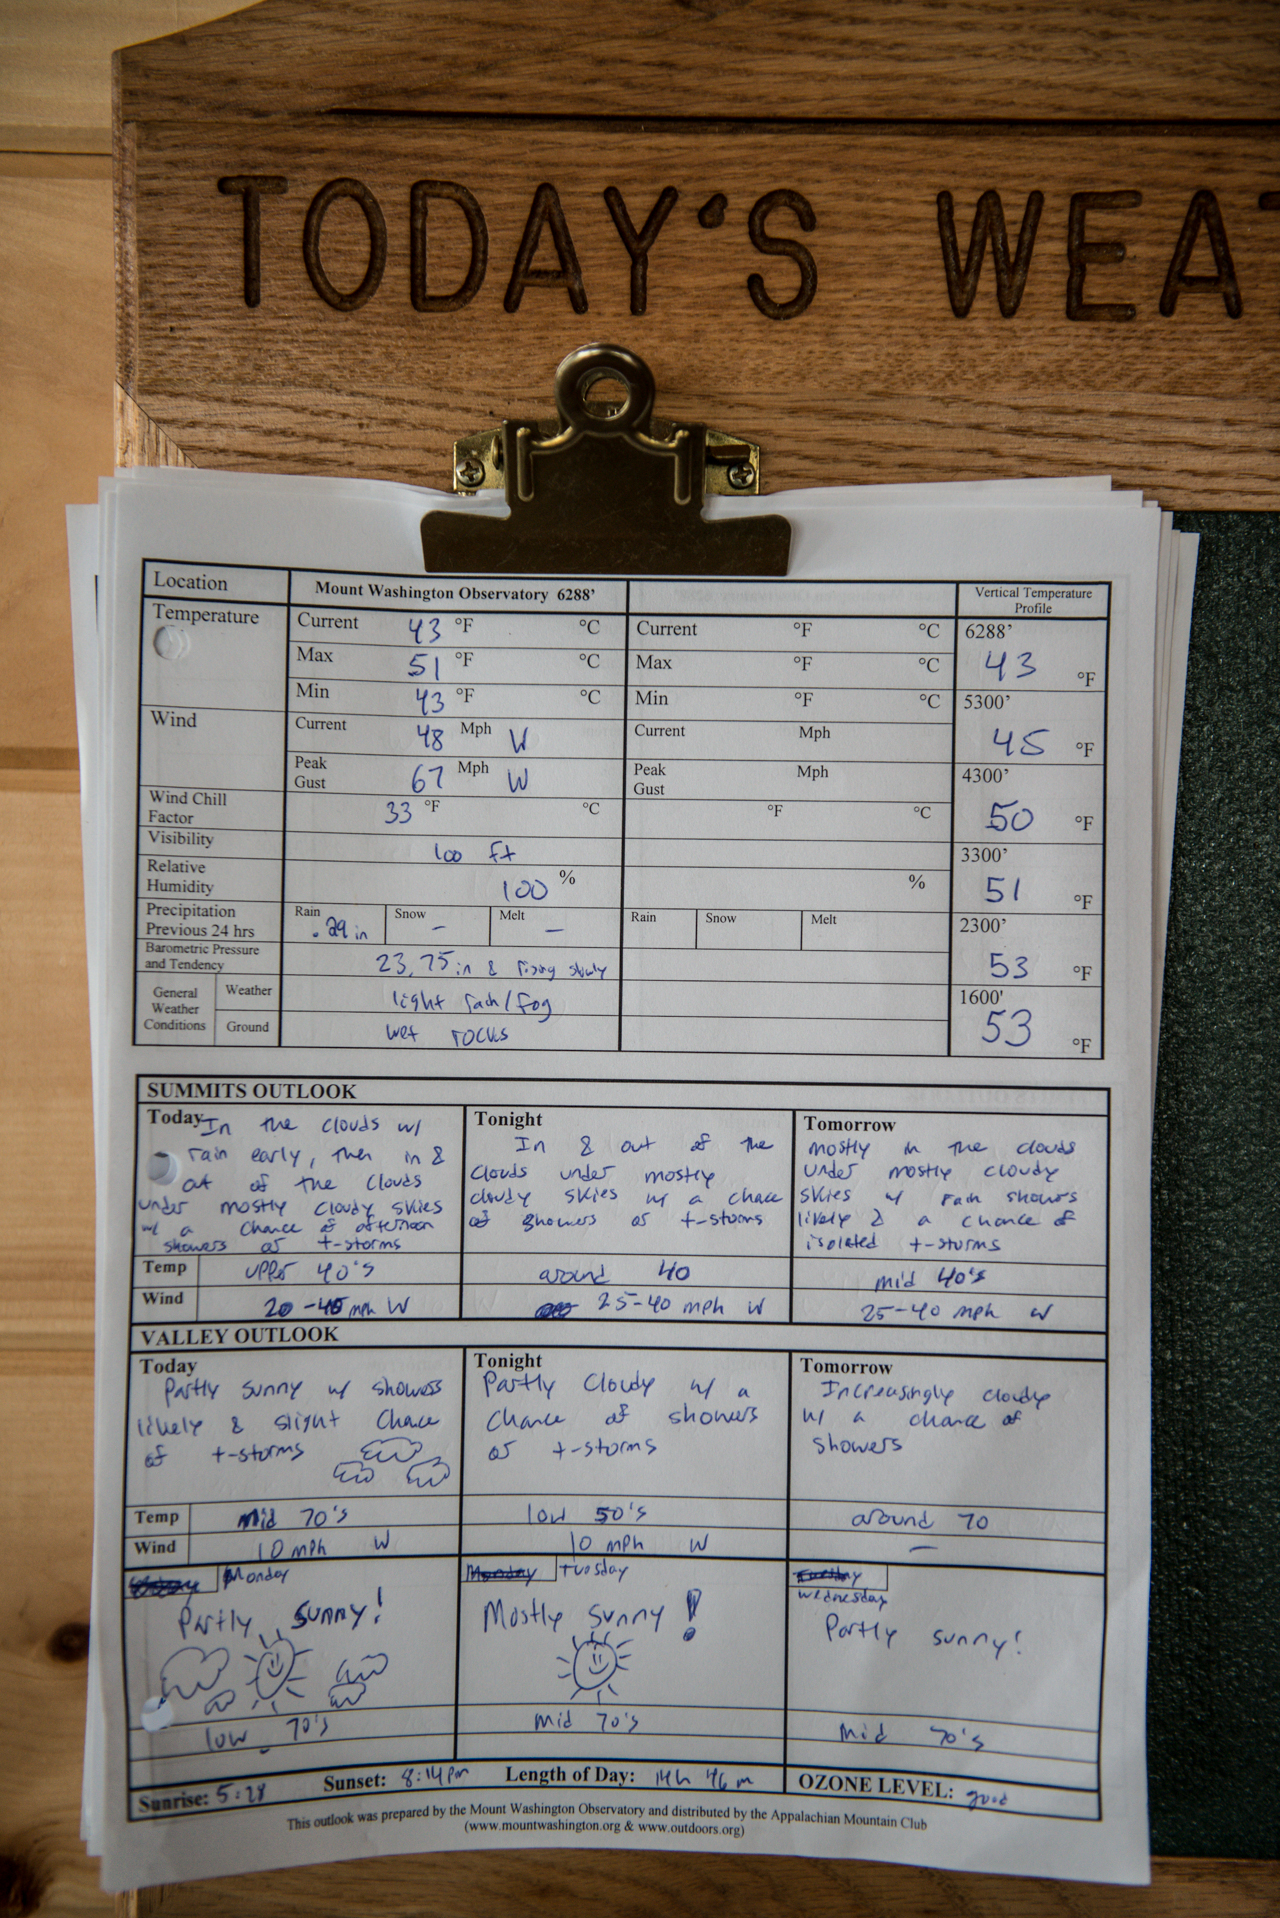 TODAY'S WEA
Location
Mount Washington Observatory 6288'
Vertical Temperature
Profile
Temperature
Current 43 °F °C
Current °F °C
6288'
43 °F
Max 51 °F °C
Max °F °C
Min 43 °F °C
Min °F °C
5300'
45 °F
Wind
Current 48 Mph W
Current Mph
Peak
Gust 67 Mph W
Peak
Gust Mph
4300'
50 °F
Wind Chill
Factor
33 °F °C
°F °C
Visibility
100 ft
3300'
51 °F
Relative
Humidity
100 %
%
Precipitation
Previous 24 hrs
Rain
.29 in
Snow
-
Melt
-
Rain
Snow
Melt
2300'
53 °F
Barometric Pressure
and Tendency
23.75 in & rising slowly
General
Weather
Conditions
Weather
light rain/fog
Ground
wet rocks
1600'
53 °F
SUMMITS OUTLOOK
Today In the clouds w/
rain early, then in &
out of the clouds
under mostly cloudy skies
w/ a chance of afternoon
showers or t-storms
Tonight
In & out of the
clouds under mostly
cloudy skies w/ a chance
of showers or t-storms
Tomorrow
mostly in the clouds
under mostly cloudy
skies w/ rain showers
likely & a chance of
isolated t-storms
Temp
upper 40's
around 40
mid 40's
Wind
20-45 mph W
25-40 mph W
25-40 mph W
VALLEY OUTLOOK
Today
Partly sunny w/ showers
likely & slight chance
of t-storms
Tonight
Partly cloudy w/ a
chance of showers
or t-storms
Tomorrow
Increasingly cloudy
w/ a chance of
showers
Temp
mid 70's
low 50's
around 70
Wind
10 mph W
10 mph W
-
Monday
Partly sunny!
low 70's
Monday Tuesday
Mostly sunny!
mid 70's
Tuesday
Wednesday
Partly sunny!
Mid 70's
Sunrise: 5:28
Sunset: 8:14 pm
Length of Day: 14h 46m
OZONE LEVEL: good
This outlook was prepared by the Mount Washington Observatory and distributed by the Appalachian Mountain Club
(www.mountwashington.org & www.outdoors.org)